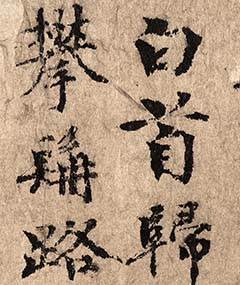 白首歸
攀 路